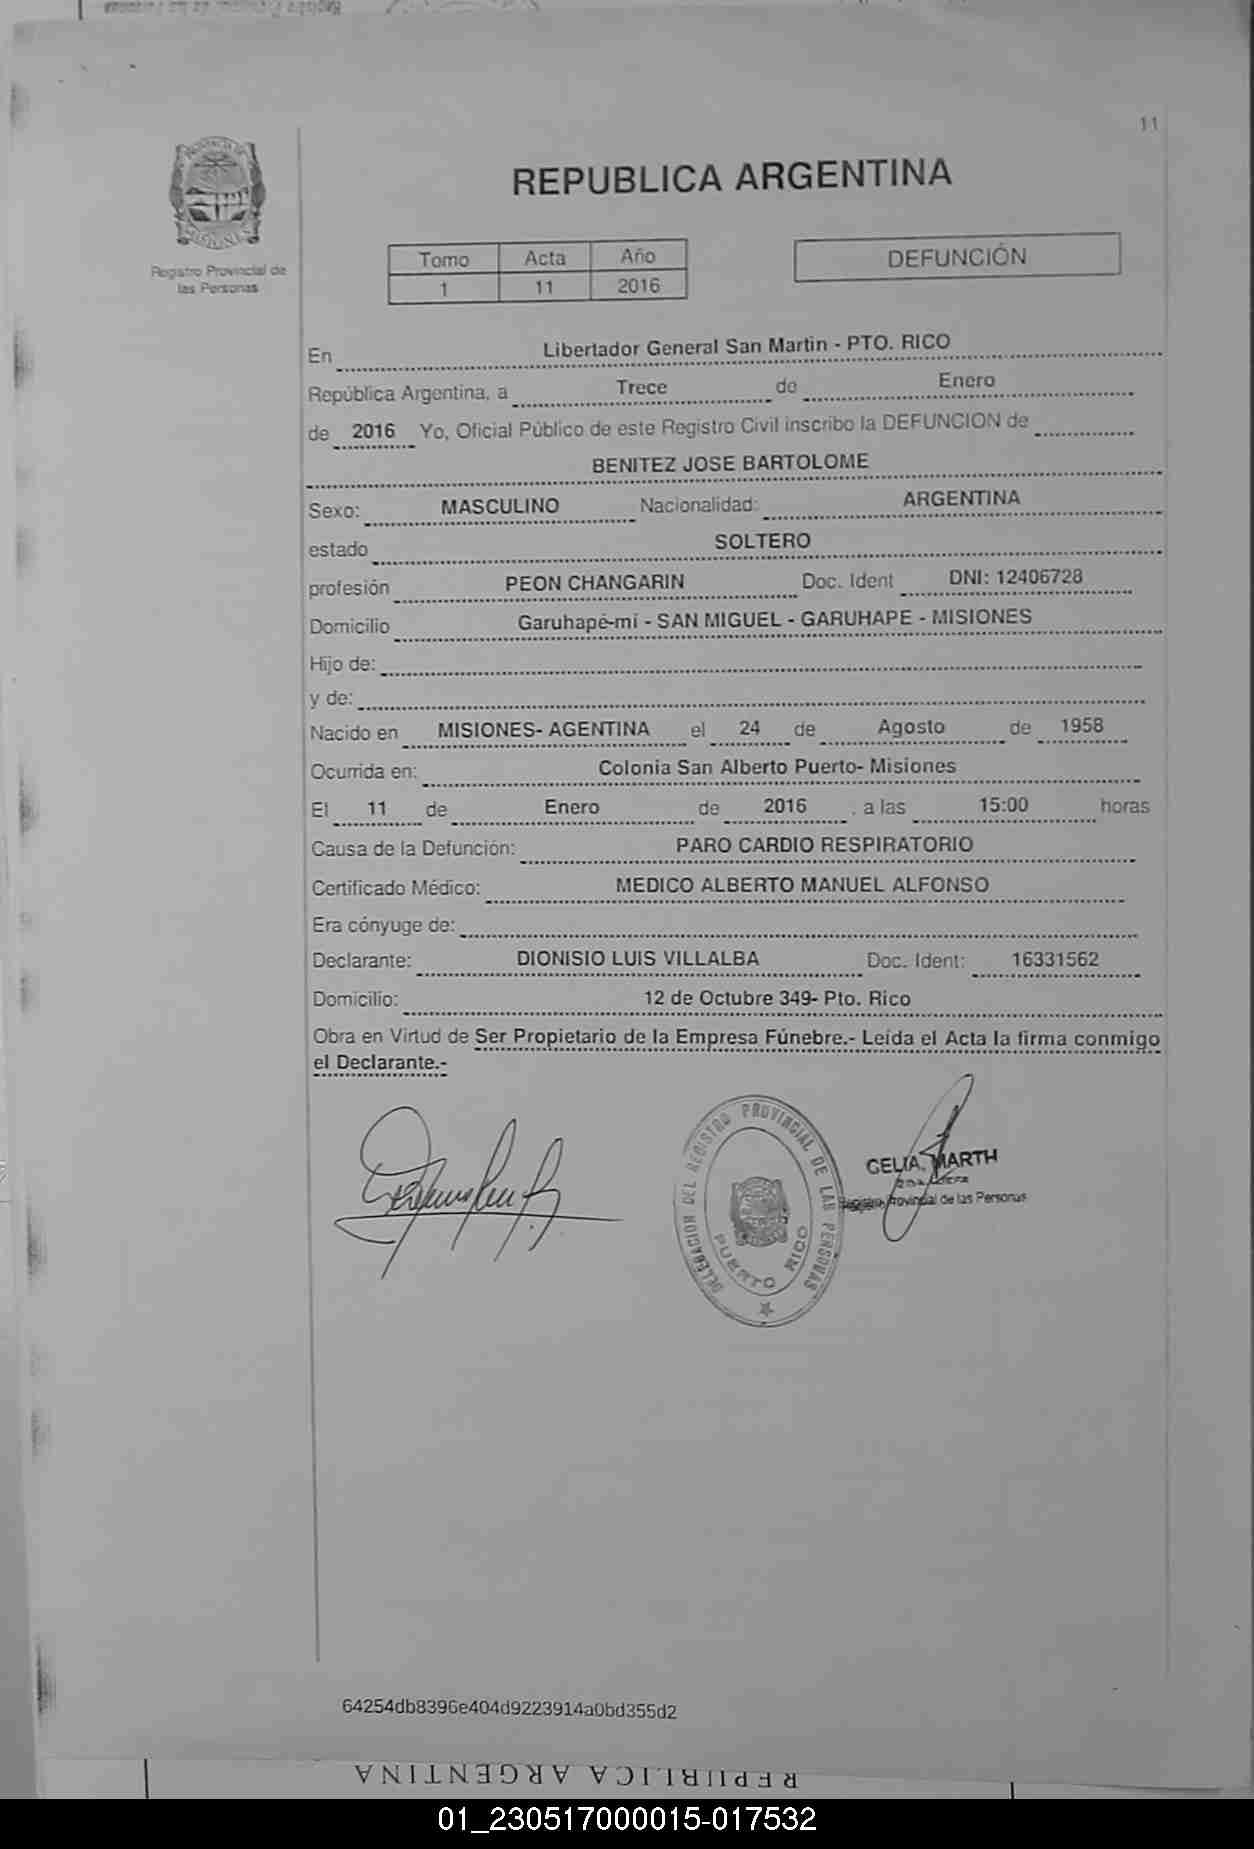 11
PROVINCIA DE
MISIONES
Registro Provincial de
las Personas
REPUBLICA ARGENTINA
Tomo Acta Año
1 11 2016
DEFUNCIÓN
En Libertador General San Martin - PTO. RICO
República Argentina, a Trece de Enero
de 2016 Yo, Oficial Público de este Registro Civil inscribo la DEFUNCION de
BENITEZ JOSE BARTOLOME
Sexo: MASCULINO Nacionalidad: ARGENTINA
estado SOLTERO
profesión PEON CHANGARIN Doc. Ident DNI: 12406728
Domicilio Garuhapé-mí - SAN MIGUEL - GARUHAPE - MISIONES
Hijo de:
y de:
Nacido en MISIONES- AGENTINA el 24 de Agosto de 1958
Ocurrida en: Colonia San Alberto Puerto- Misiones
El 11 de Enero de 2016 , a las 15:00 horas
Causa de la Defunción: PARO CARDIO RESPIRATORIO
Certificado Médico: MEDICO ALBERTO MANUEL ALFONSO
Era cónyuge de:
Declarante: DIONISIO LUIS VILLALBA Doc. Ident: 16331562
Domicilio: 12 de Octubre 349- Pto. Rico
Obra en Virtud de Ser Propietario de la Empresa Fúnebre.- Leída el Acta la firma conmigo
el Declarante.-
DELEGACION DEL REGISTRO PROVINCIAL DE LAS PERSONAS
PUERTO RICO
CELIA MARTH
Registro Provincial de las Personas
64254db8396e404d9223914a0bd355d2
REPUBLICA ARGENTINA
01_230517000015-017532